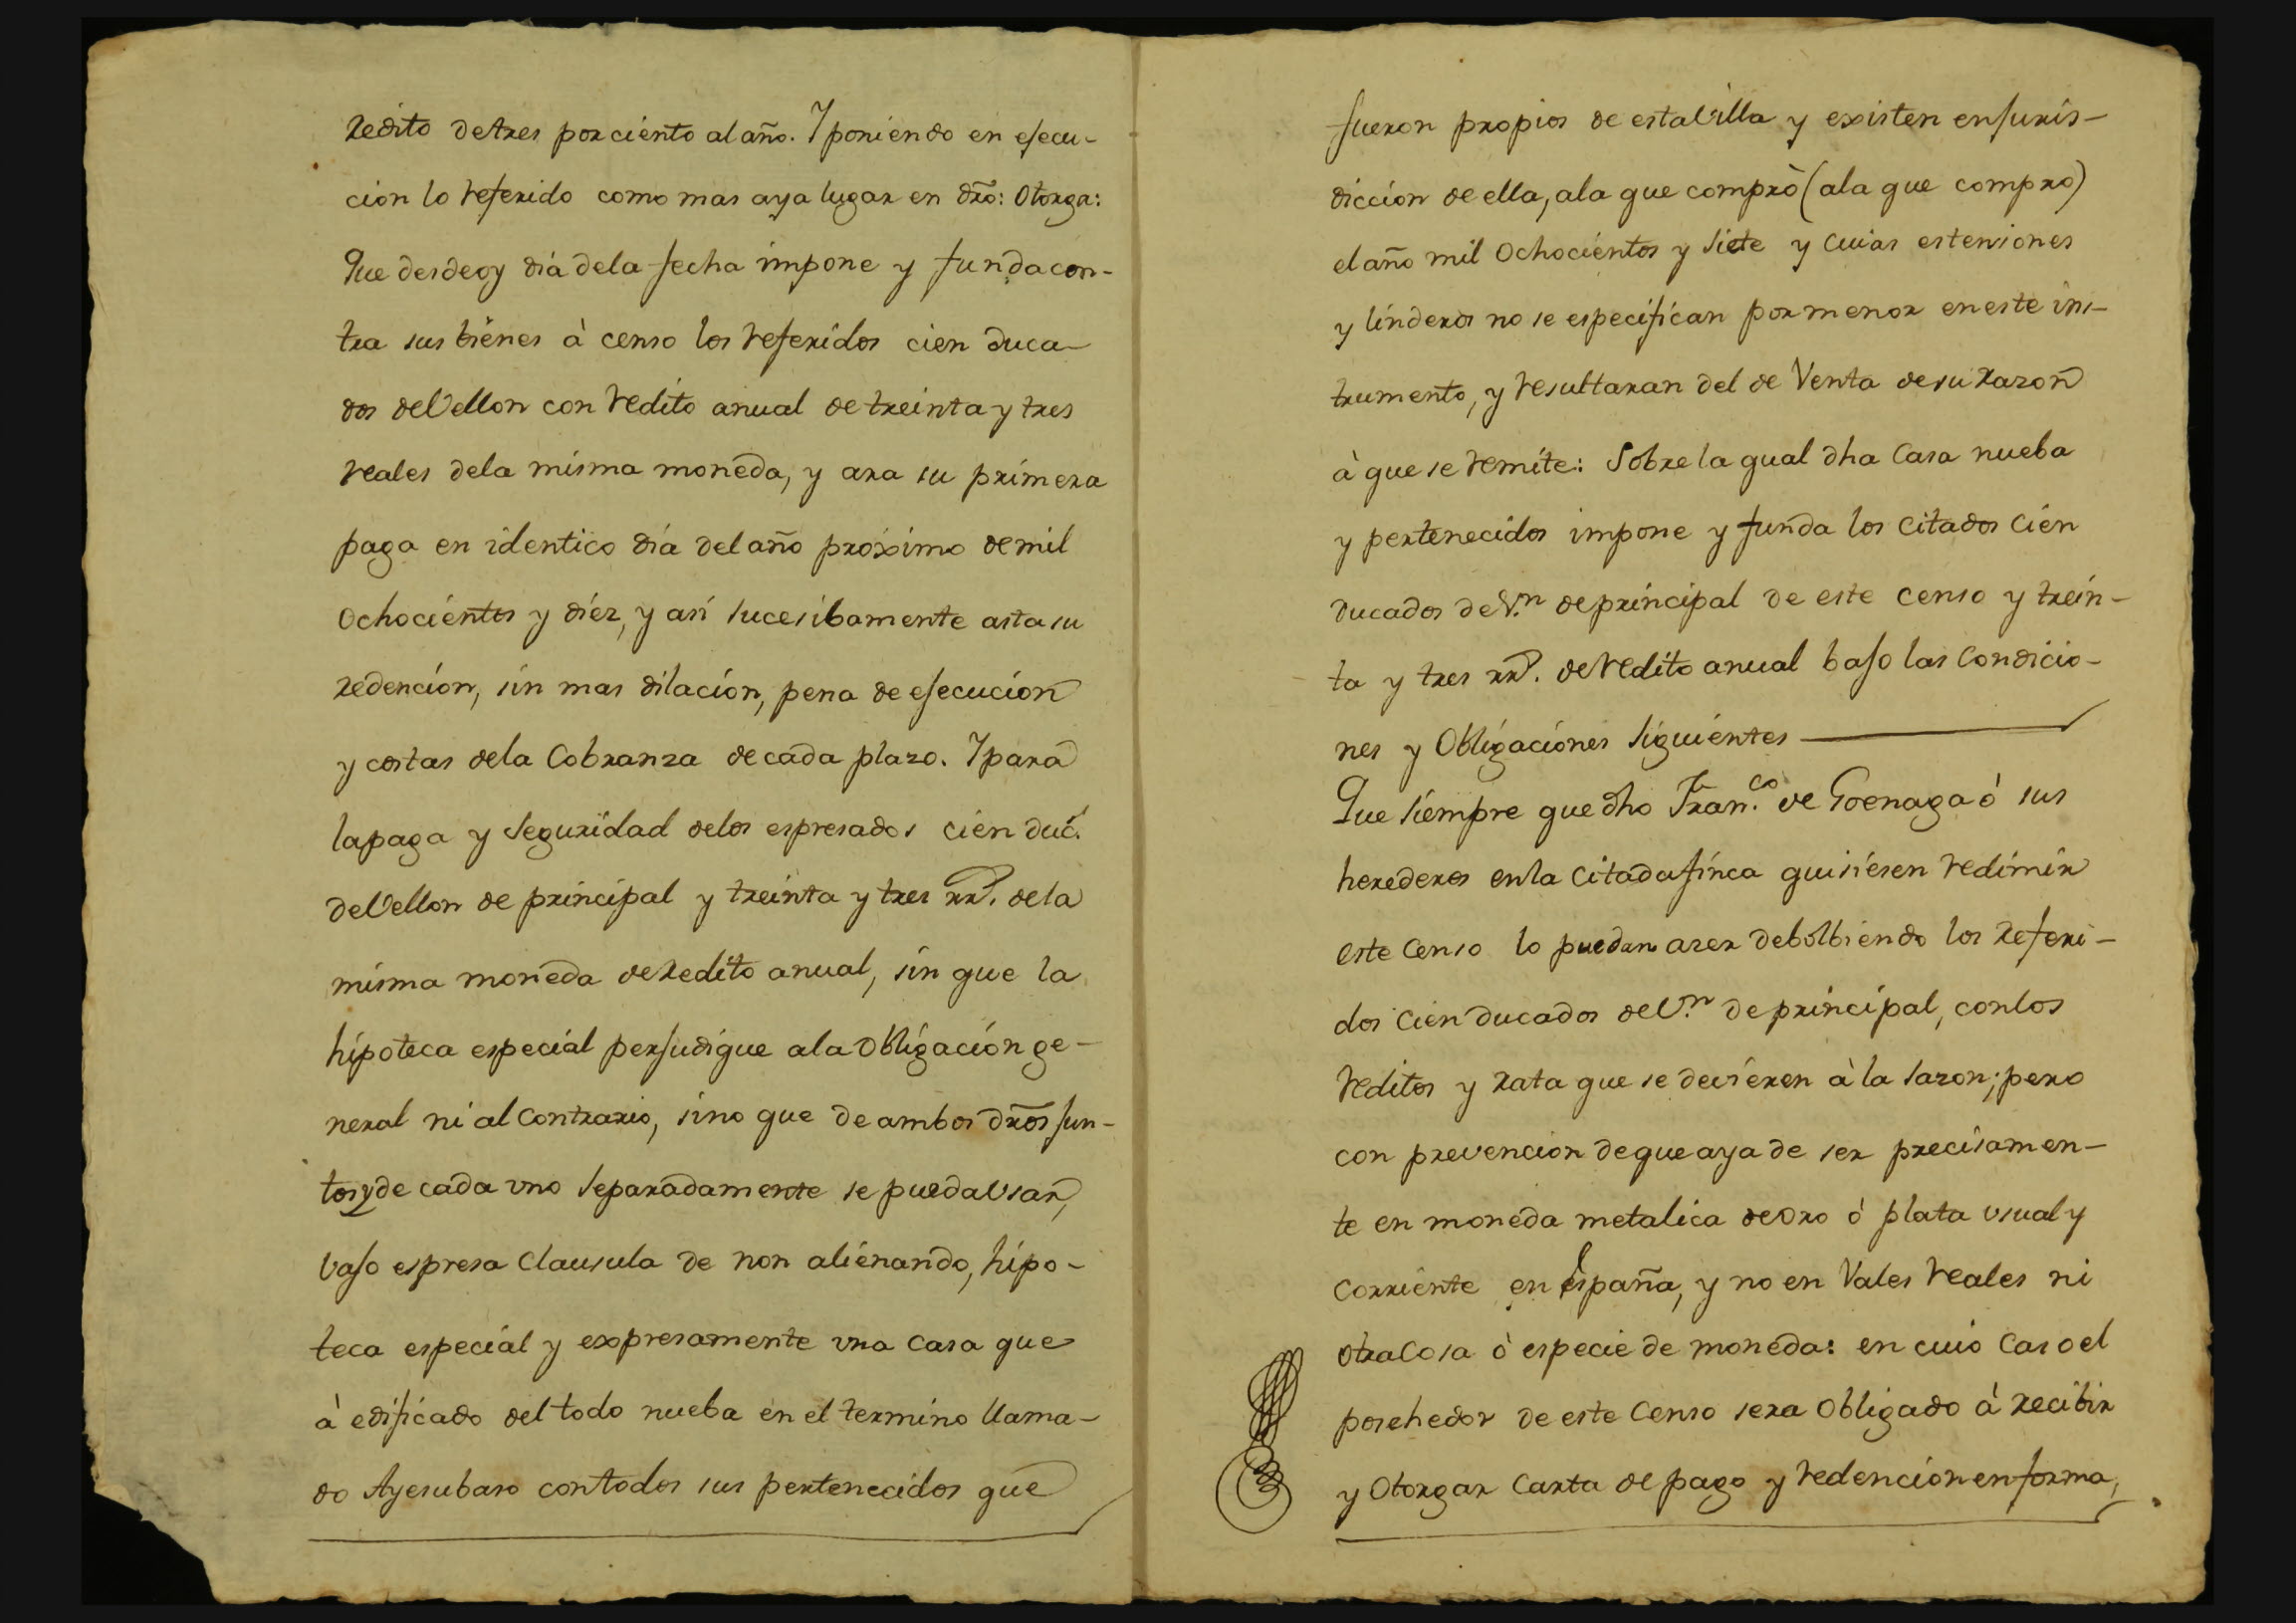 Redito de tres por ciento al año. Y poniendo en ejecu-
cion lo referido como mas aya lugar en dr̃o: Otorga:
Que desde oy dia dela fecha impone y funda con-
tra sus bienes à censo los referidos cien duca-
dos de Vellon con redito anual de treinta y tres
reales dela misma moneda, y ara su primera
paga en identico dia del año proximo de mil
Ochocientos y diez, y asi sucesibamente asta su
redencion, sin mas dilacion, pena de ejecucion
y costas dela Cobranza de cada plazo. Y para
la paga y Seguridad delos espresados cien duc.
de Vellon de principal y treinta y tres rr.̃ dela
misma moneda de Redito anual, sin que la
hipoteca especial perjudique ala Obligacion ge-
neral ni al Contrario, sino que de ambos dr̃os jun-
tos y de cada vno Separadamente se pueda Vsar,
vajo espresa Clausula de non alienando, hipo-
teca especial y expresamente vna Casa que
à edificado del todo nueba en el termino llama-
do Ayesubaso con todos sus pertenecidos que
fueron propios de esta Villa y existen en juris-
diccion de ella, ala que comprò (ala que compro)
el año mil Ochocientos y Siete y Cuias estensiones
y linderos no se especifican por menor en este ins-
trumento, y resultaran del de Venta de su Razon
à que se remite: Sobre la qual dha Casa nueba
y pertenecidos impone y funda los Citados Cien
ducados de V.n de principal de este Censo y trein-
ta y tres rr.̃ de redito anual bajo las Condicio-
nes y Obligaciones Siguientes
Que Siempre que dho Fran.co de Goenaga ò sus
herederos en la Citada finca quisiesen redimir
este Censo lo puedan azer debolbiendo los Referi-
dos Cien ducados de V.n de principal, con los
reditos y rata que se devieren à la Sazon; pero
con prevencion de que aya de ser precisamen-
te en moneda metalica de Oro ò plata vsual y
Corriente en España, y no en Vales reales ni
otra Cosa ò especie de moneda: en cuio Caso el
posehedor de este Censo sera Obligado à recibir
y Otorgar Carta de pago y redencion en forma,